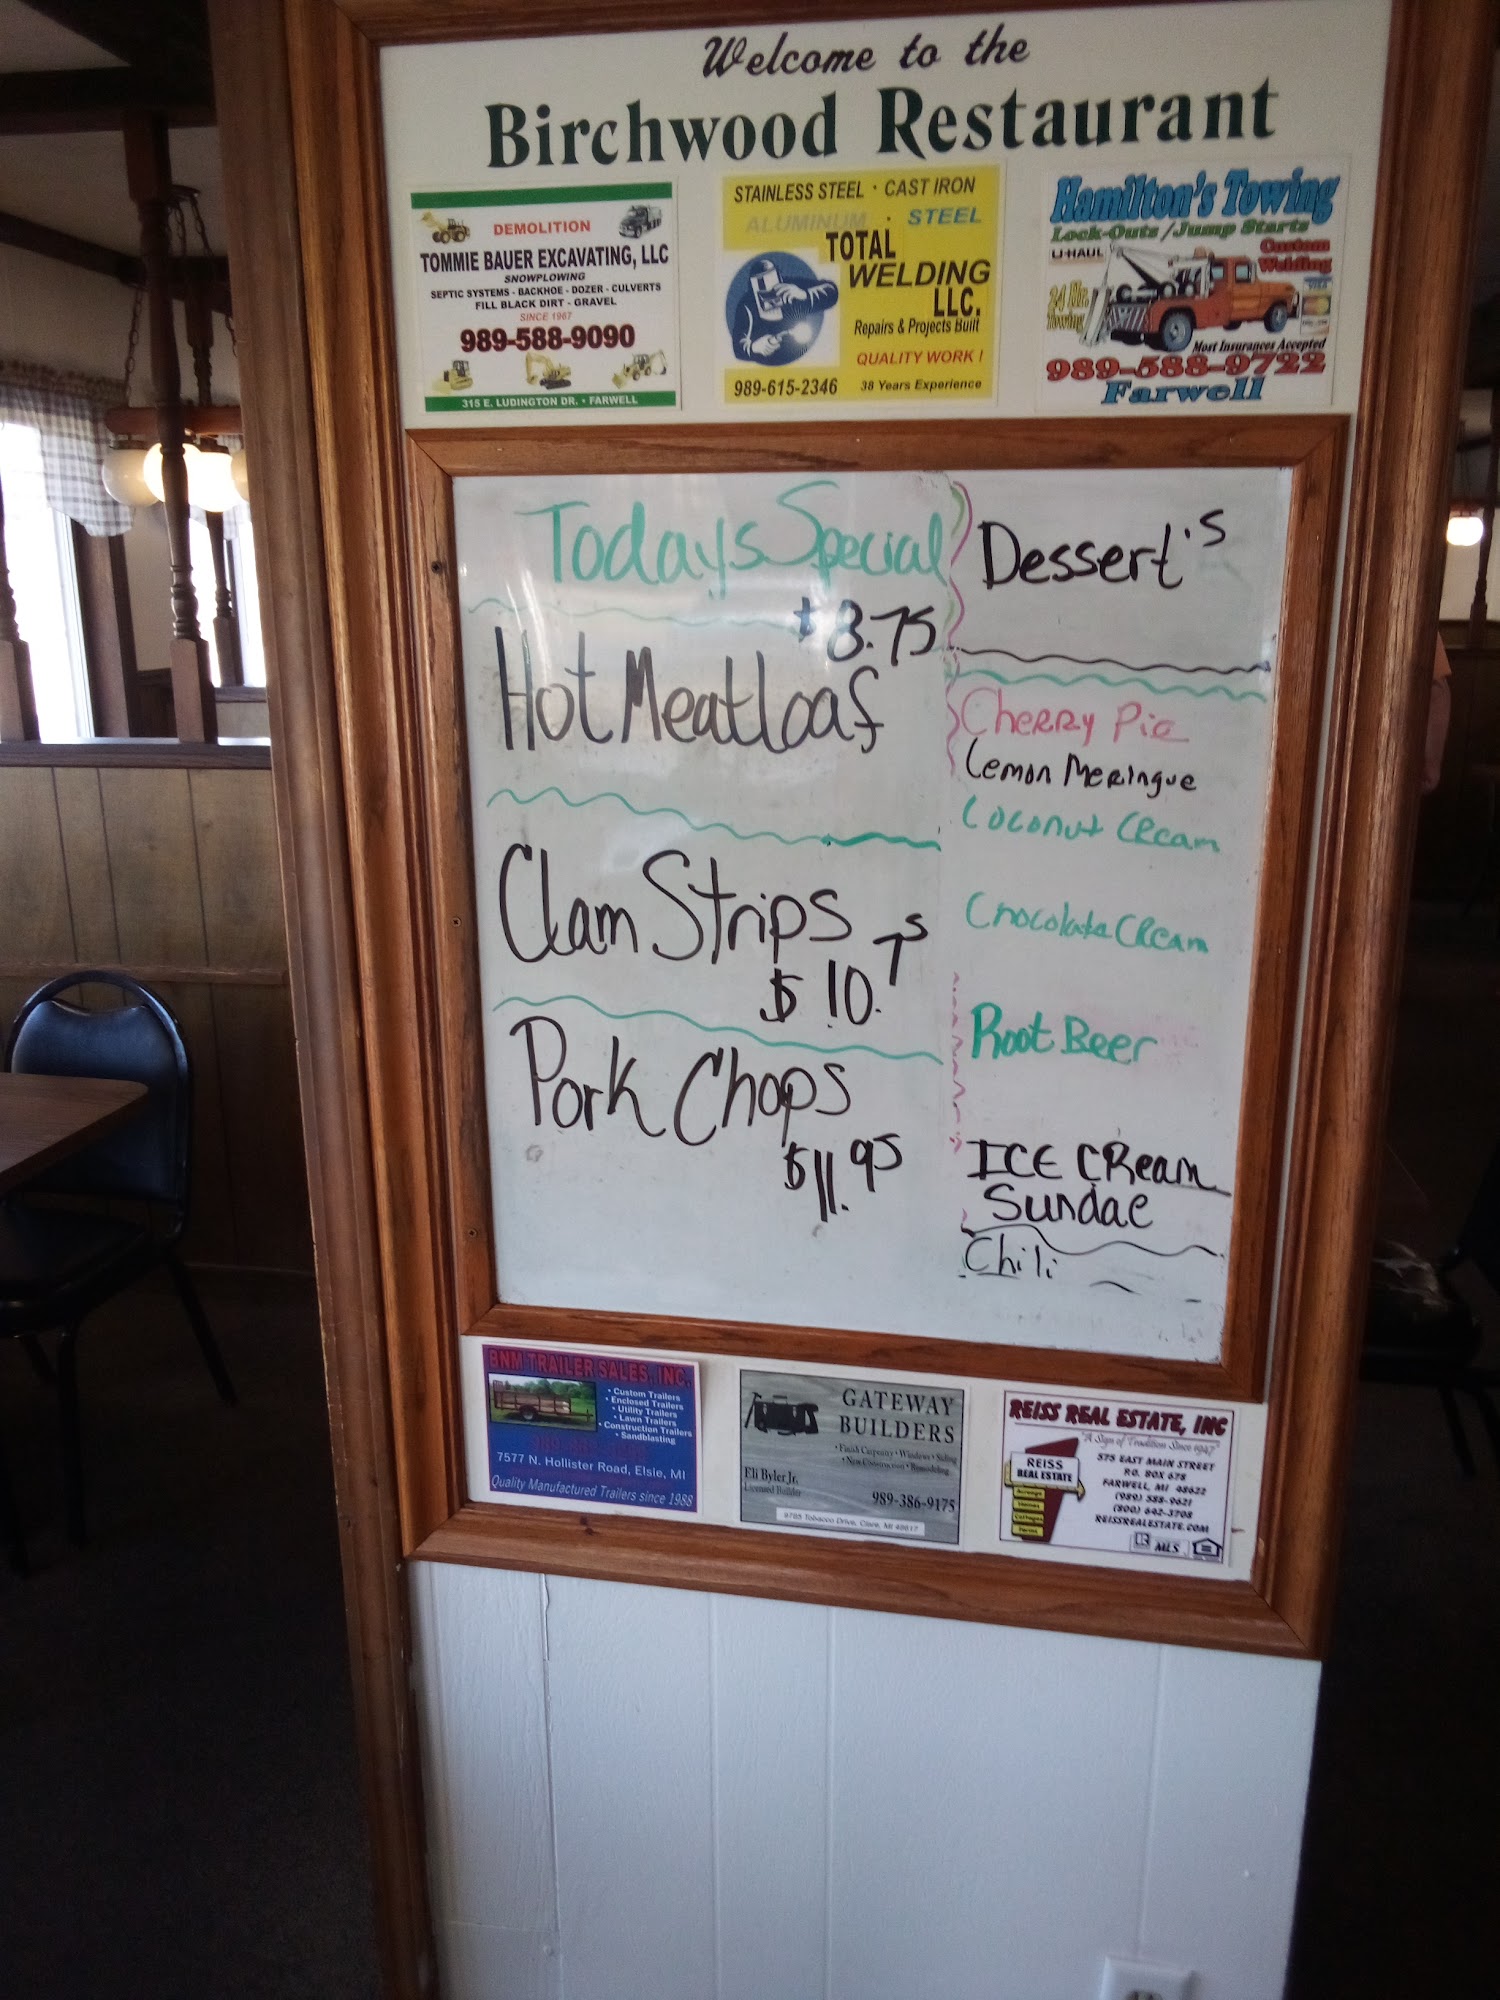 Welcome to the
Birchwood Restaurant
DEMOLITION
TOMMIE BAUER EXCAVATING, LLC
SNOWPLOWING
SEPTIC SYSTEMS - BACKHOE - DOZER - CULVERTS
FILL BLACK DIRT - GRAVEL
SINCE 1967
989-588-9090
315 E. LUDINGTON DR. • FARWELL
STAINLESS STEEL • CAST IRON
ALUMINUM • STEEL
TOTAL
WELDING
LLC.
Repairs & Projects Built
QUALITY WORK !
989-615-2346 38 Years Experience
Hamilton's Towing
Lock-Outs / Jump Starts
U-HAUL
Custom
Welding
24 Hr.
Towing
VISA
Most Insurances Accepted
989-588-9722
Farwell
Todays Special
$8.75
Hot Meatloaf
Clam Strips
$10.75
Pork Chops
$11.95
Dessert's
Cherry Pie
Lemon Meringue
Coconut Cream
Chocolate Cream
Root Beer
ICE CReam
Sundae
Chili
BNM TRAILER SALES, INC.
• Custom Trailers
• Enclosed Trailers
• Utility Trailers
• Lawn Trailers
• Construction Trailers
• Sandblasting
7577 N. Hollister Road, Elsie, MI
Quality Manufactured Trailers since 1988
GATEWAY
BUILDERS
• Finish Carpentry • Windows • Siding
• New Construction • Remodeling
Eli Byler Jr.
Licensed Builder
989-386-9175
9795 Tobacco Drive, Clare, MI 48617
REISS REAL ESTATE, INC
"A Sign of Tradition Since 1947"
REISS
REAL ESTATE
Acreage
Homes
Cottages
Farms
575 EAST MAIN STREET
P.O. BOX 678
FARWELL, MI 48622
(989) 588-9621
(800) 642-3708
REISSREALESTATE.COM
R MLS